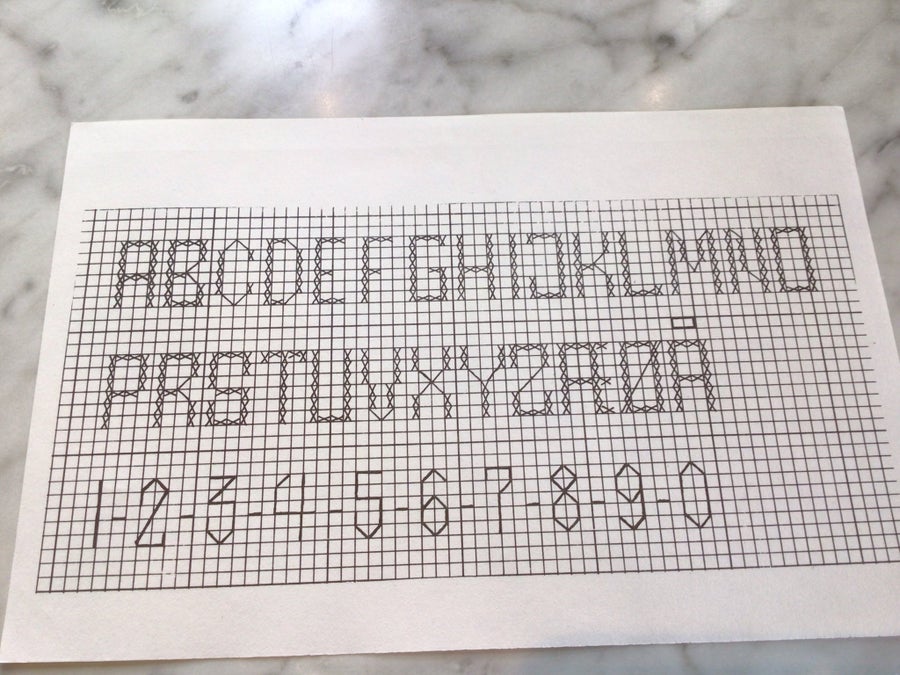 ABCDEFGHIJKLMNO
PRSTUVXYZÆØÅ
1-2-3-4-5-6-7-8-9-0